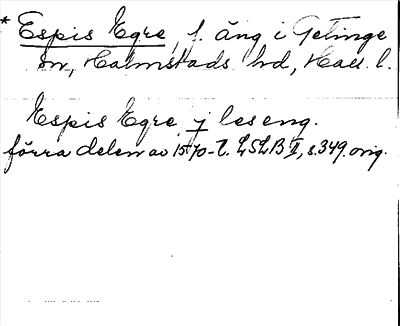 * Espis Egre, f. äng i Getinge
sn, Halmstads hd, Hall. l.
Espis Egre j leseng.
förra delen av 1570-t. LSLB II, s. 349. orig.